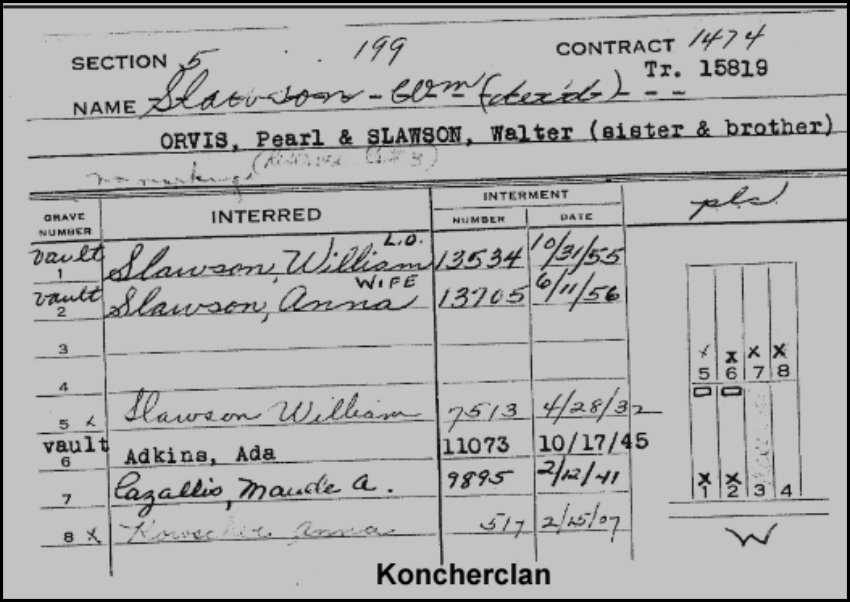 SECTION 5 199 CONTRACT 1474
Tr. 15819
NAME Slawson - Wm (dec'd) - - -
ORVIS, Pearl & SLAWSON, Walter (sister & brother)
no markings
GRAVE NUMBER INTERRED INTERMENT NUMBER DATE
vault 1 Slawson, William L.O. 13534 10/31/55
vault 2 Slawson, Anna WIFE 13705 6/11/56
3
4
5 Slawson William 7513 4/28/32
vault 6 Adkins, Ada 11073 10/17/45
7 Cazallis, Maude A. 9895 2/12/41
8 X Anna 517 2/15/07
x x x x
5 6 7 8
x x
1 2 3 4
W
Koncherclan